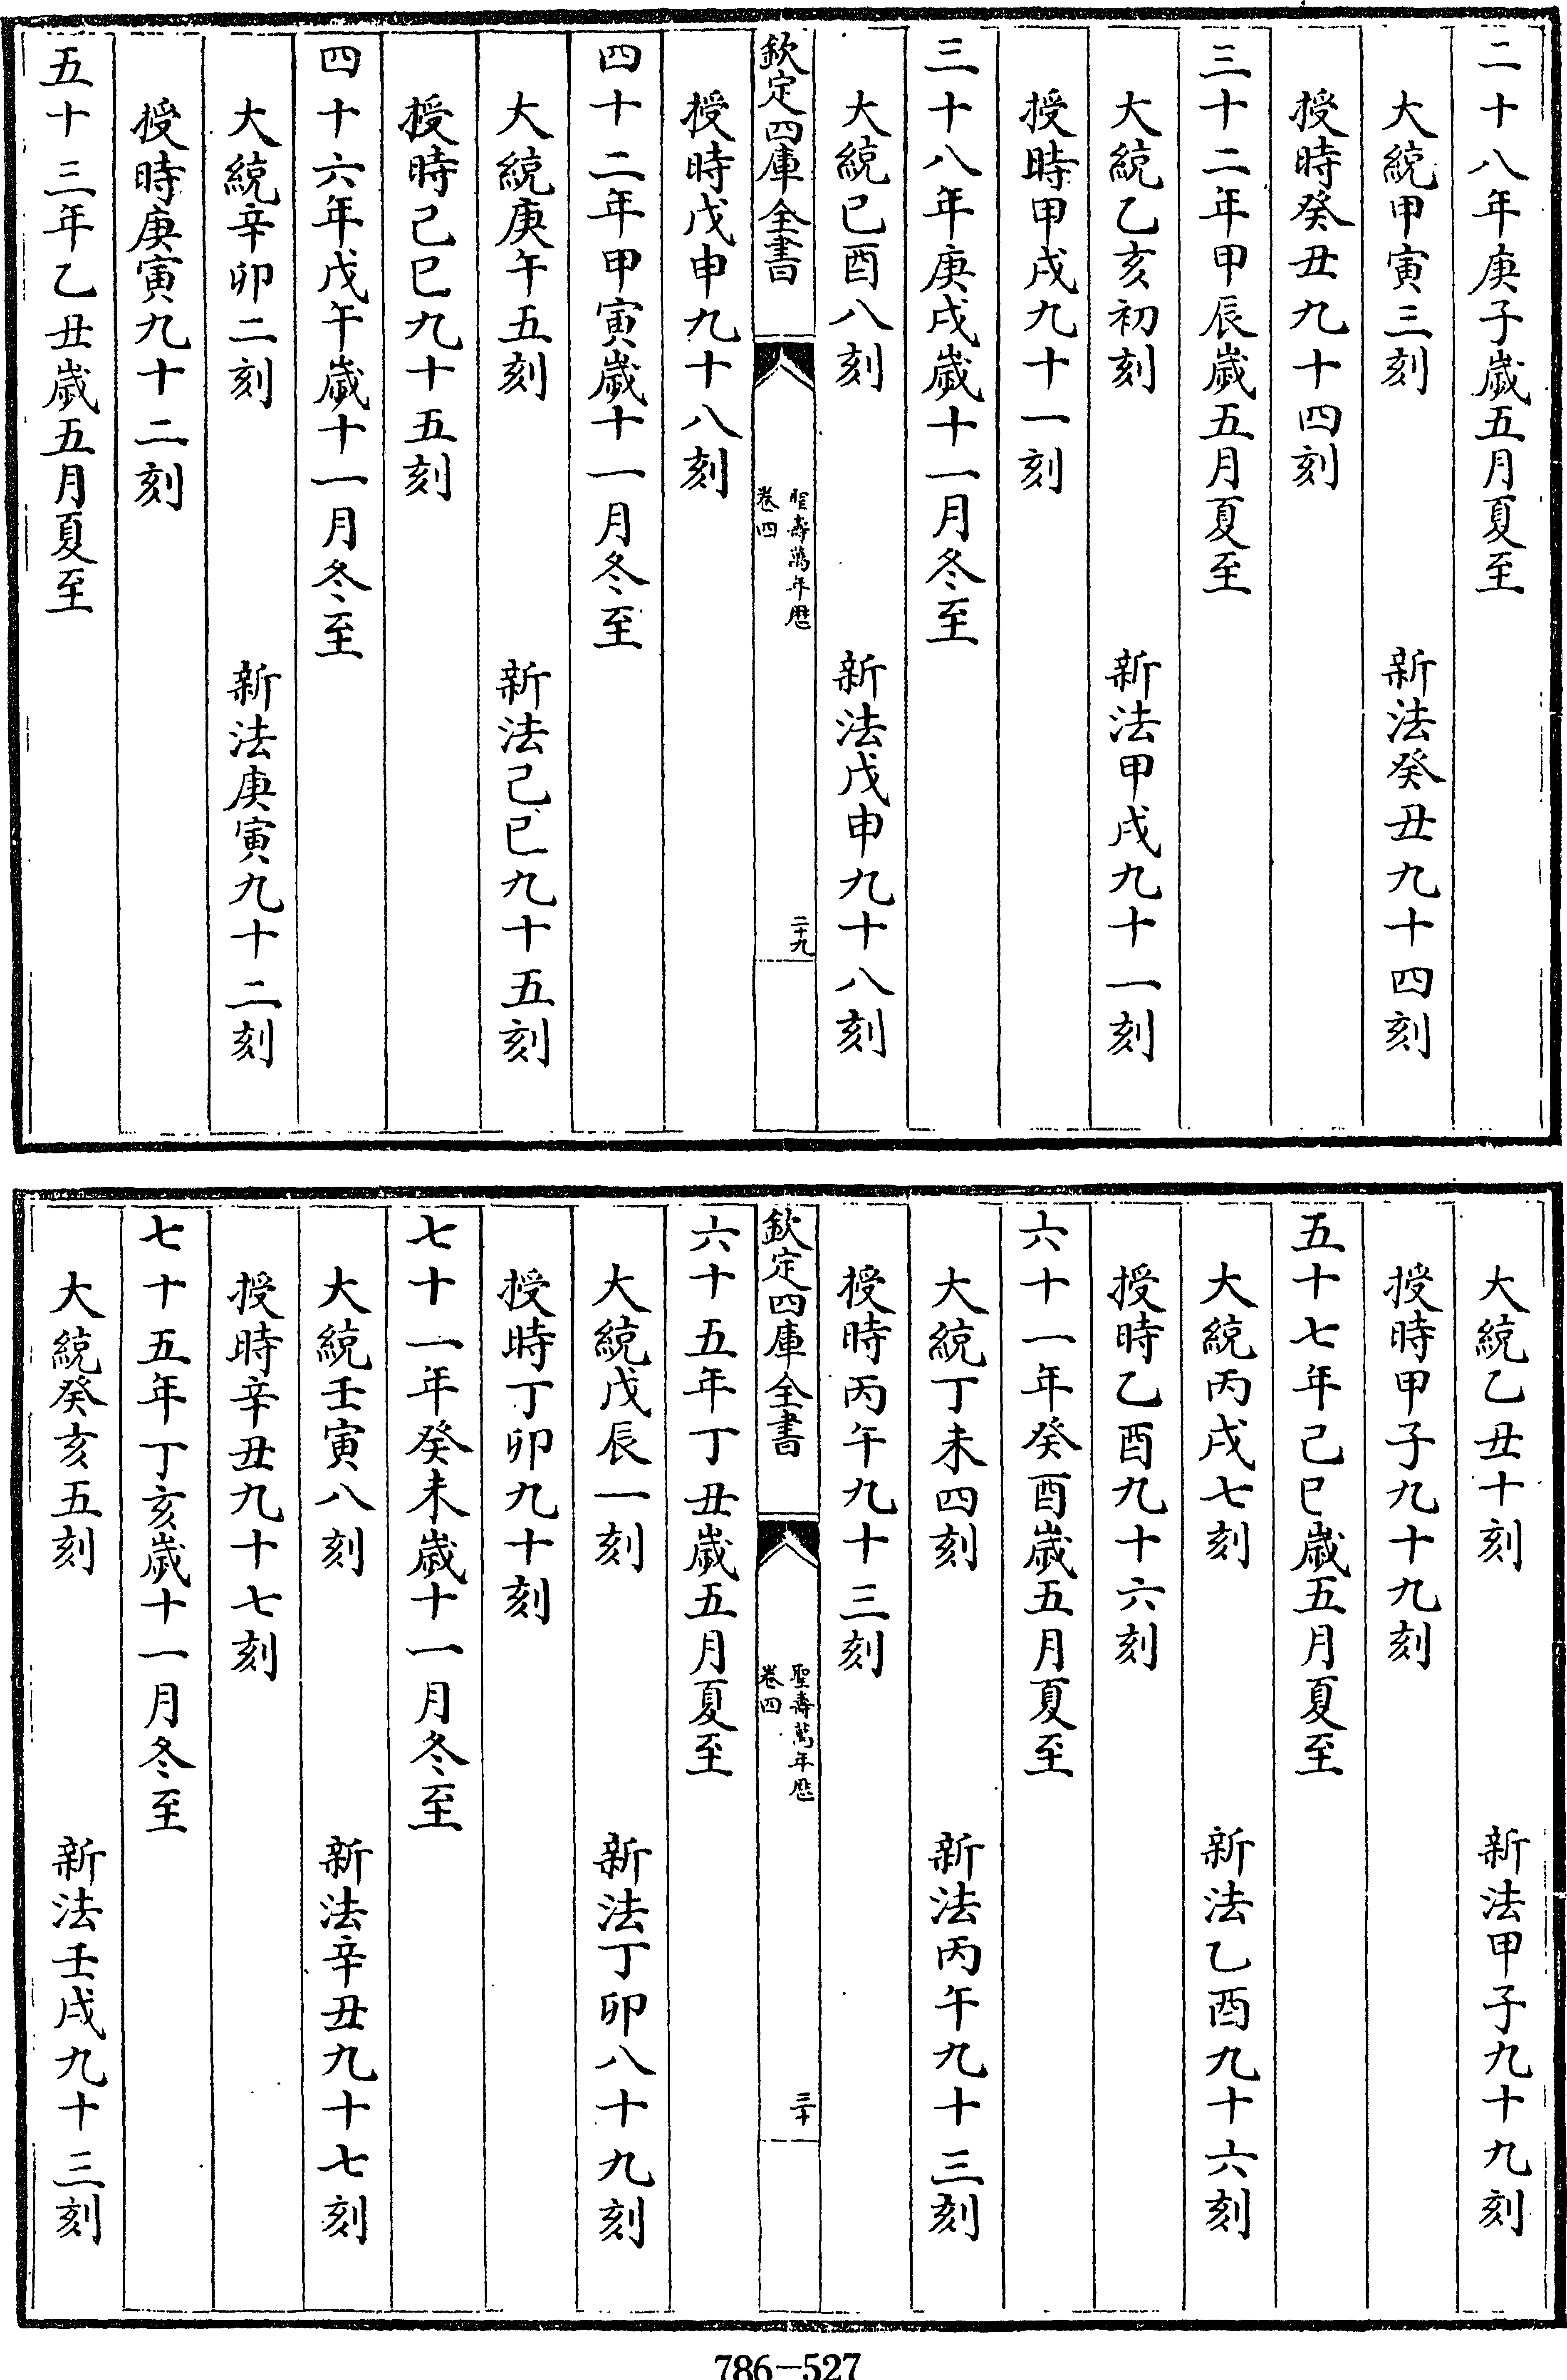 二十八年庚子歲五月夏至
大統甲寅三刻　新法癸丑九十四刻
授時癸丑九十四刻
三十二年甲辰歲五月夏至
大統乙亥初刻　新法甲戌九十一刻
授時甲戌九十一刻
三十八年庚戌歲十一月冬至
大統已酉八刻　新法戊申九十八刻
欽定四庫全書　聖壽萬年歷
卷四　二十九
授時戊申九十八刻
四十二年甲寅歲十一月冬至
大統庚午五刻　新法己巳九十五刻
授時己巳九十五刻
四十六年戊午歲十一月冬至
大統辛卯二刻　新法庚寅九十二刻
授時庚寅九十二刻
五十三年乙丑歲五月夏至
大統乙丑十刻　新法甲子九十九刻
授時甲子九十九刻
五十七年己巳歲五月夏至
大統丙戌七刻　新法乙酉九十六刻
授時乙酉九十六刻
六十一年癸酉歲五月夏至
大統丁未四刻　新法丙午九十三刻
授時丙午九十三刻
欽定四庫全書　聖壽萬年歷
卷四　三十
六十五年丁丑歲五月夏至
大統戊辰一刻　新法丁卯八十九刻
授時丁卯九十刻
七十一年癸未歲十一月冬至
大統壬寅八刻　新法辛丑九十七刻
授時辛丑九十七刻
七十五年丁亥歲十一月冬至
大統癸亥五刻　新法壬戌九十三刻
786—527